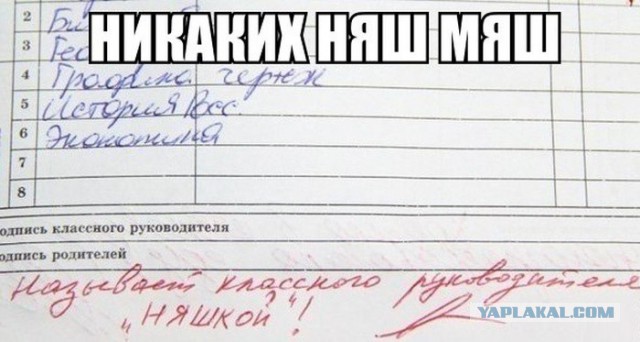 НИКАКИХ НЯШ МЯШ
2
3 Гео
4 Графика чертж
5 История Рос.
6 Экономика
7
8
одпись классного руководителя
одпись родителей
Называет классного руководителя
„НЯШКОЙ"!
YAPLAKAL.COM